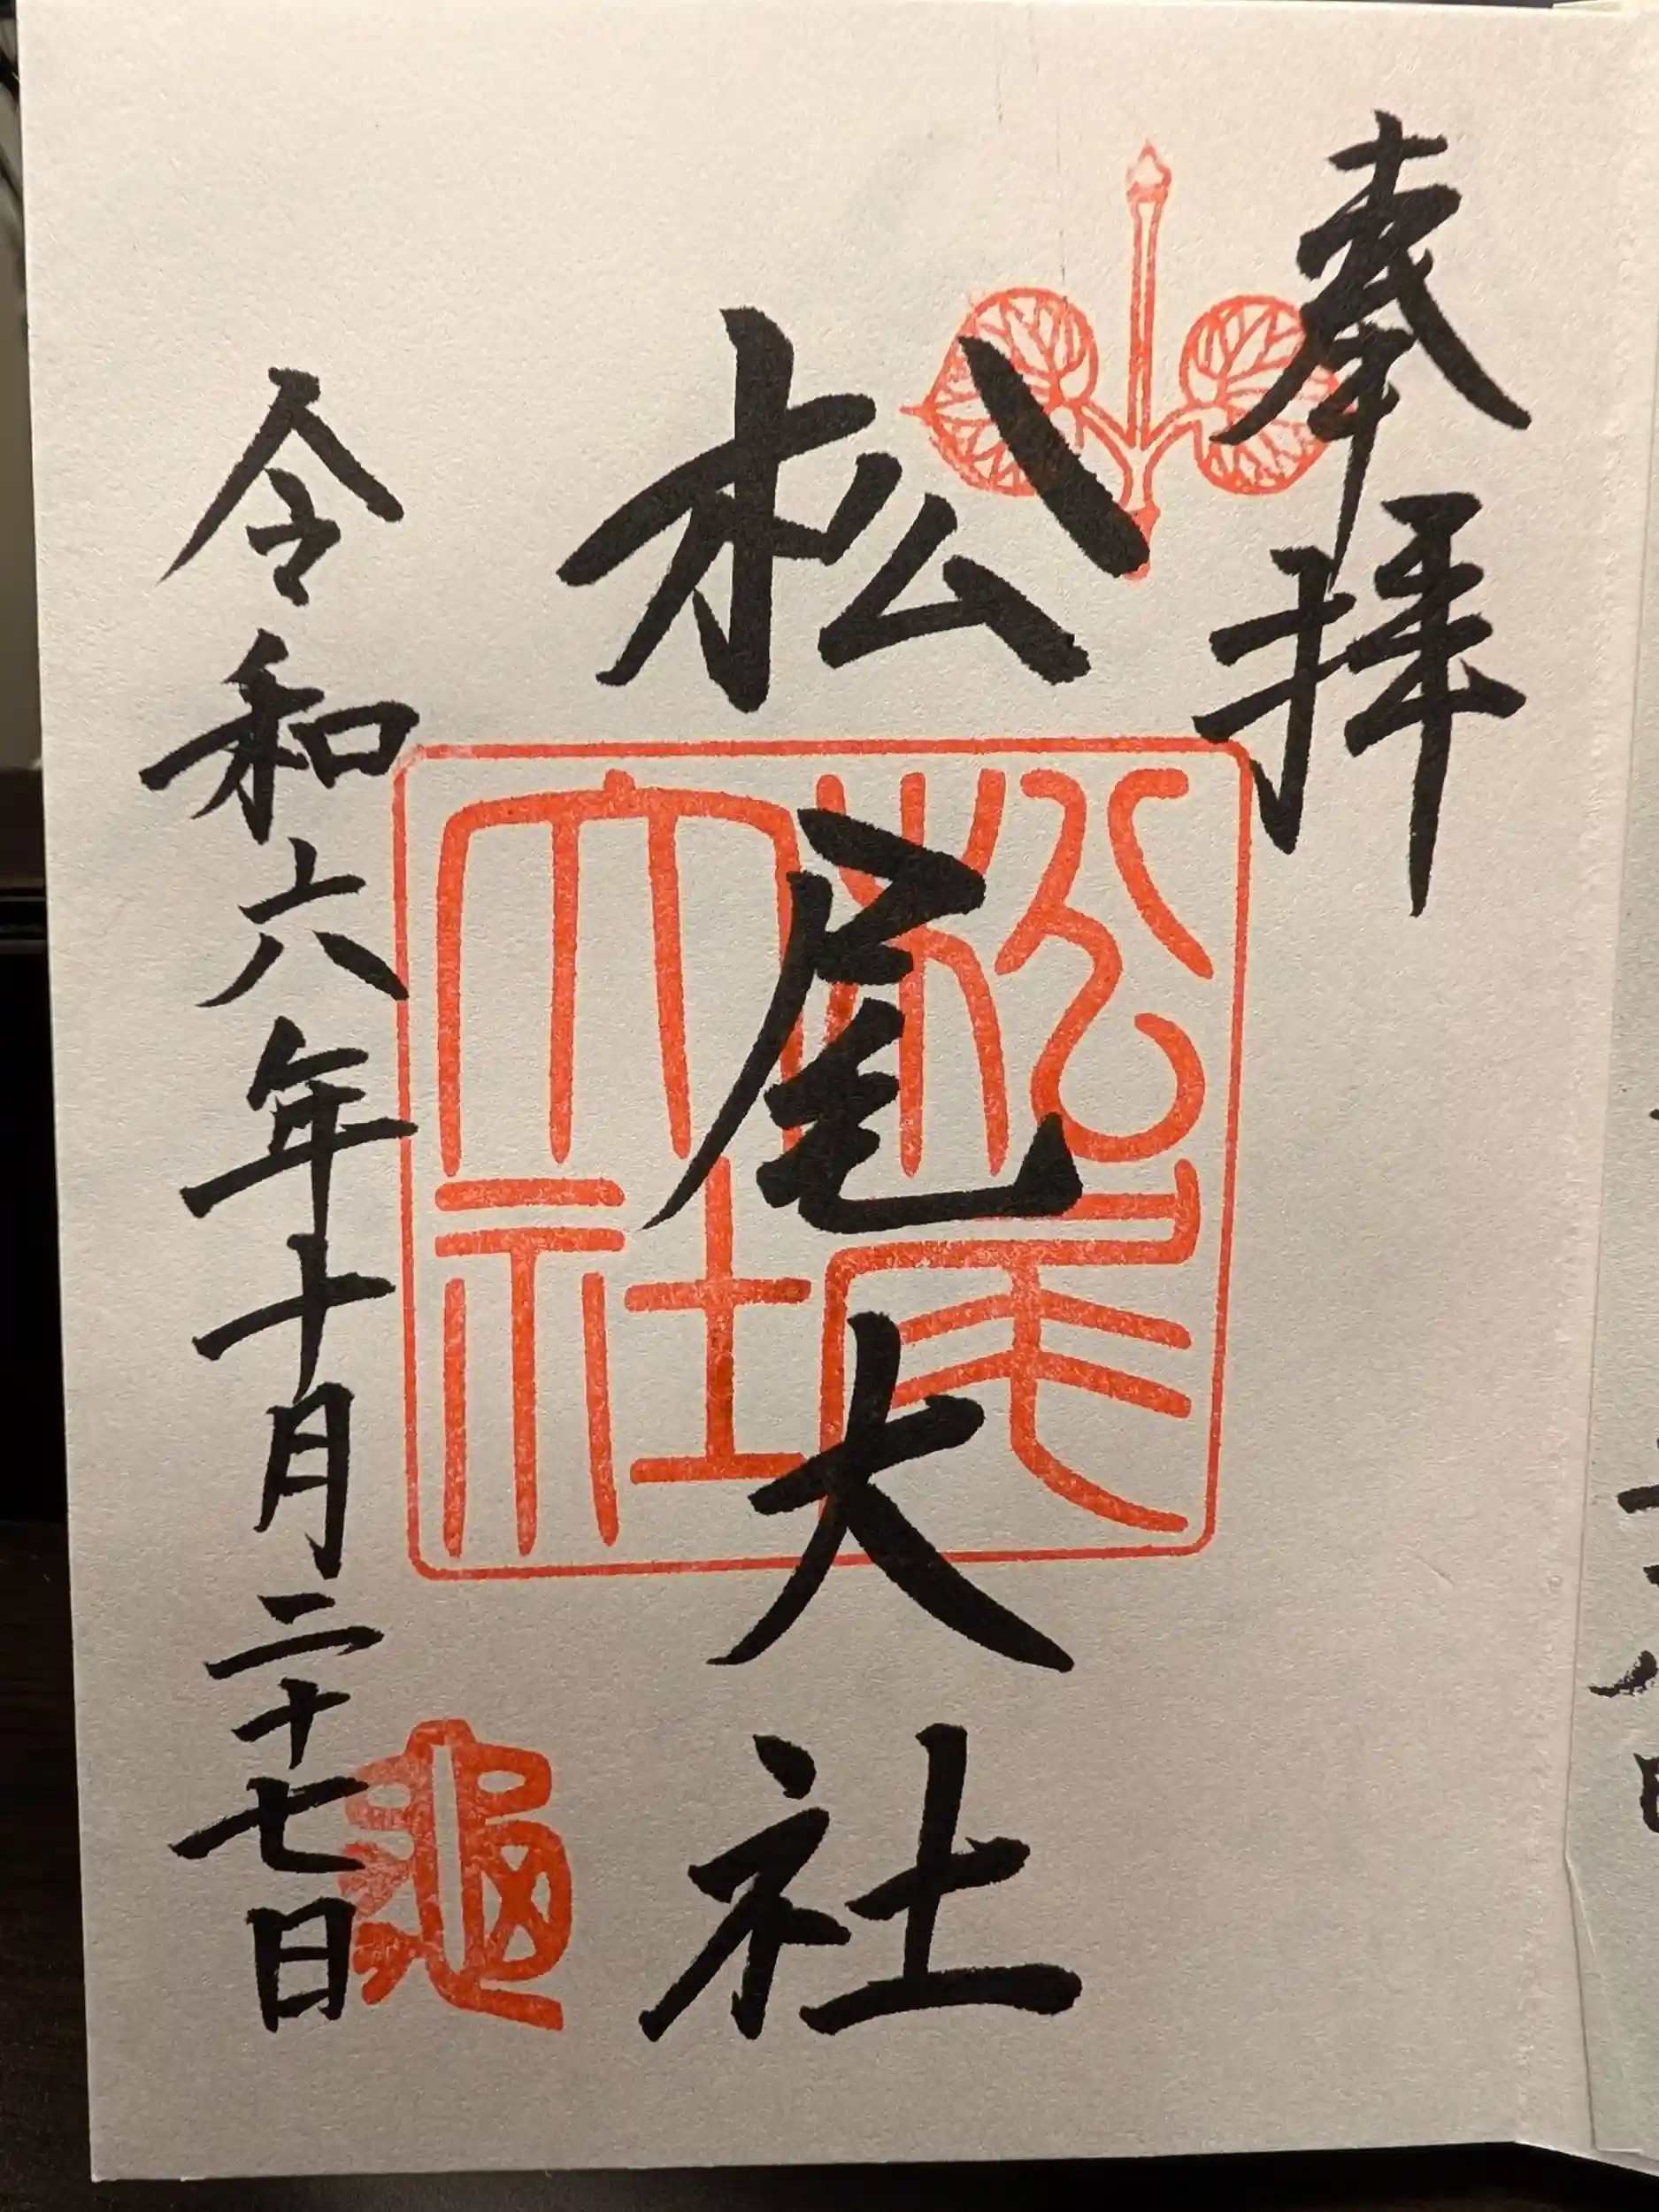 奉拝
松尾大社
松尾大社
令和六年十月二十七日
亀